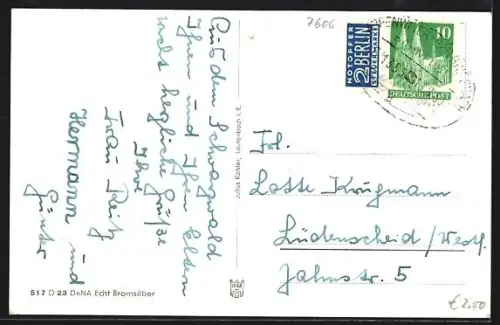 Aus dem Schwarzwald
Ihnen und Ihren Eltern
recht herzliche Grüße
Ihre
Frau Reitz
Hermann und
Günter
517 D 23 DeNA Echt Bromsilber
7606
NOTOPFER
2 BERLIN
STEUERMARKE
10
DEUTSCHE POST
Frl.
Lotte Krugmann
Lüdenscheid / Westf.
Jahnstr. 5
€ 2,50